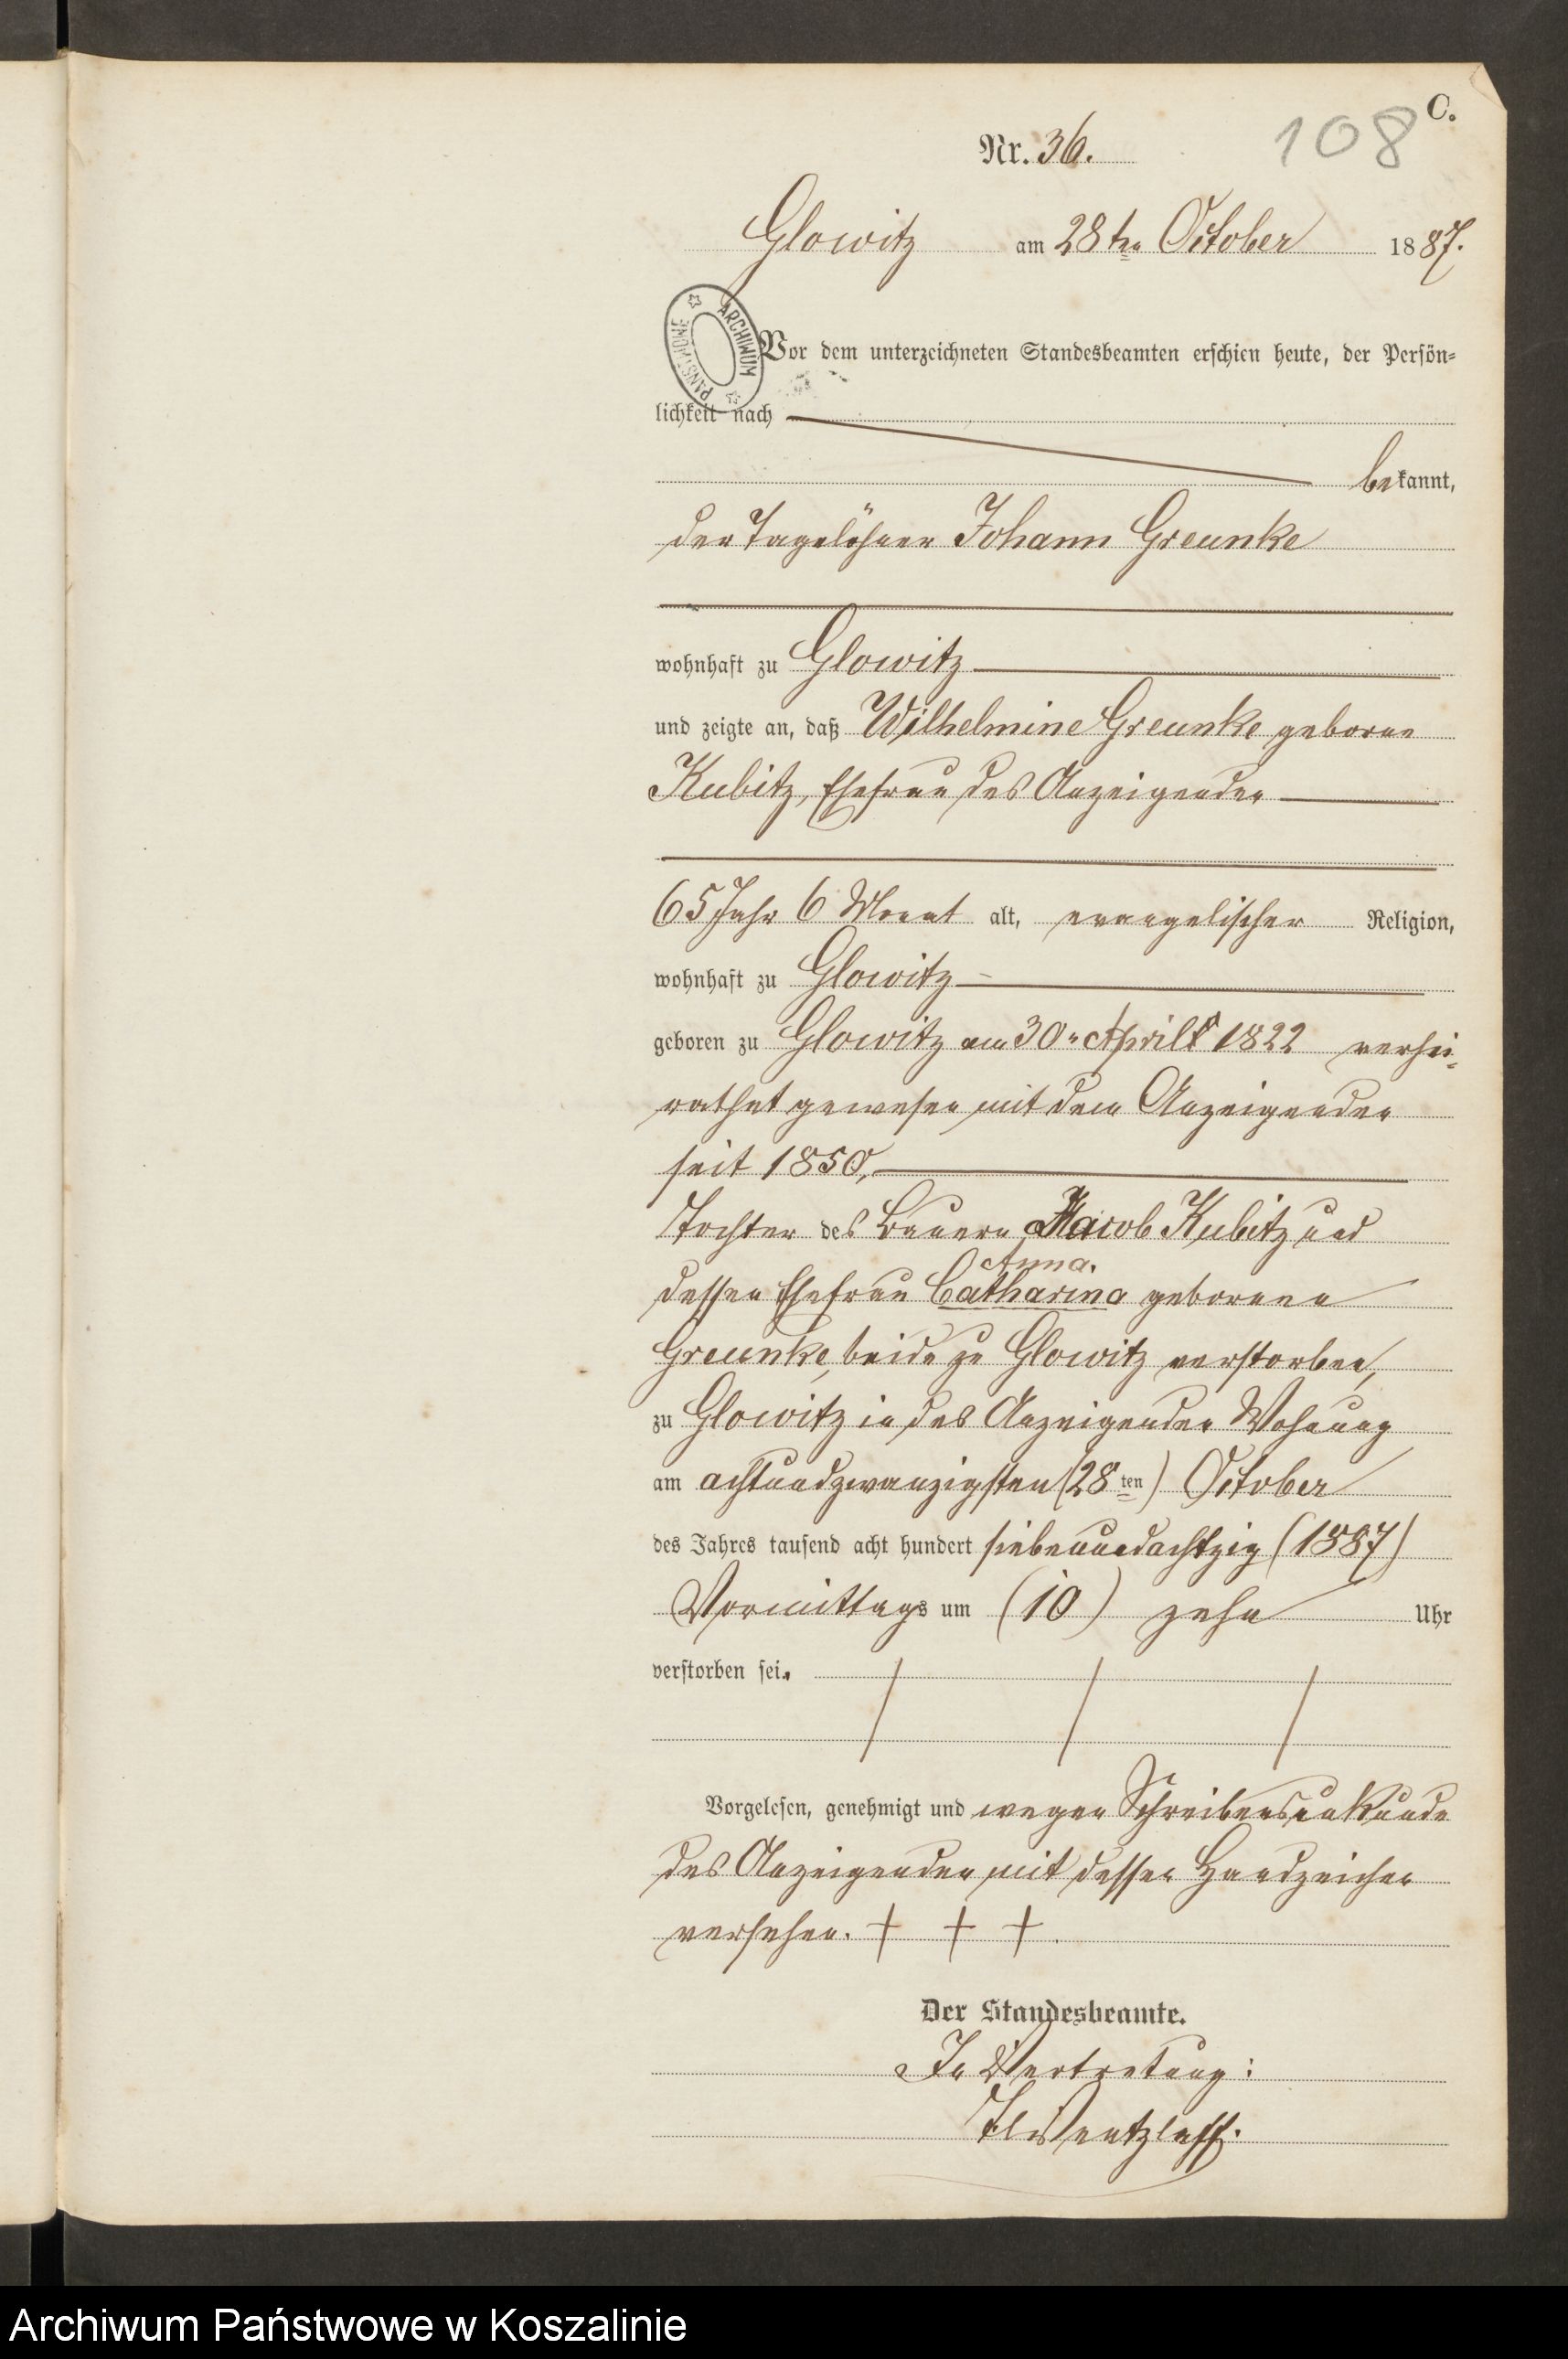 C.
108
Nr. 36.
Glowitz am 28ten October 1887.
ARCHIWUM PAŃSTWOWE
Vor dem unterzeichneten Standesbeamten erschien heute, der Persön-
lichkeit nach
bekannt,
der Tagelöhner Johann Greunke
wohnhaft zu Glowitz
und zeigte an, daß Wilhelmine Greunke geborne
Kubitz, Ehefrau des Anzeigenden
65 Jahr 6 Monat alt, evangelischer Religion,
wohnhaft zu Glowitz
geboren zu Glowitz am 30n April 1822 verhei-
rathet gewesen mit dem Anzeigenden
seit 1850,
Tochter des Bauern Jacob Kubitz und
Anna.
dessen Ehefrau Catharina geborenen
Greunke, beide zu Glowitz verstorben,
zu Glowitz in des Anzeigenden Wohnung
am achtundzwanzigsten (28ten) October
des Jahres tausend acht hundert siebenundachtzig (1887)
Vormittags um (10) zehn Uhr
verstorben sei.
Vorgelesen, genehmigt und wegen Schreibensunkunde
des Anzeigenden mit dessen Handzeichen
versehen. + + +.
Der Standesbeamte.
In Vertretung:
Wentzlaff.
Archiwum Państwowe w Koszalinie